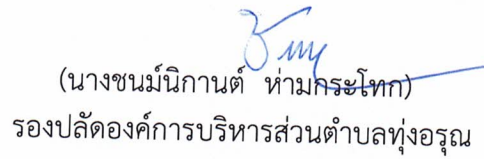 (นางชนม์นิกานต์ ห่ามกระโทก)
รองปลัดองค์การบริหารส่วนตำบลทุ่งอรุณ